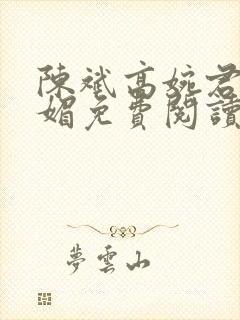 陳斌高婉君
媚免費閱讀
夢雲山